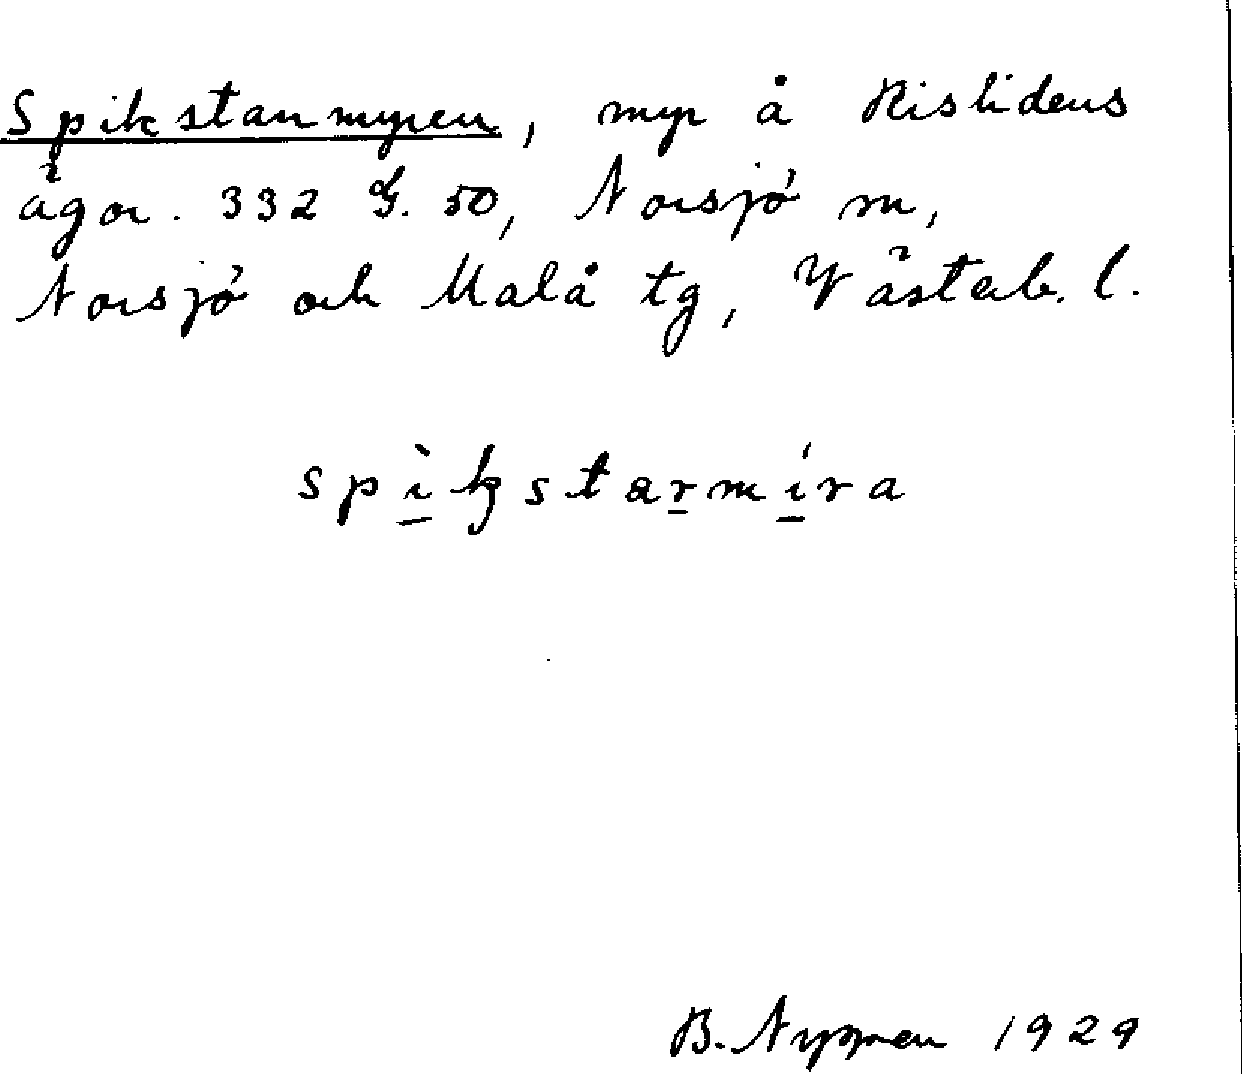 Spikstarrmyren, myr å Rislidens
ägor. 332 G. 50, Norsjö sn,
Norsjö och Malå tg, Västerb. l.
spìkstarmíra
B. Nygren 1929